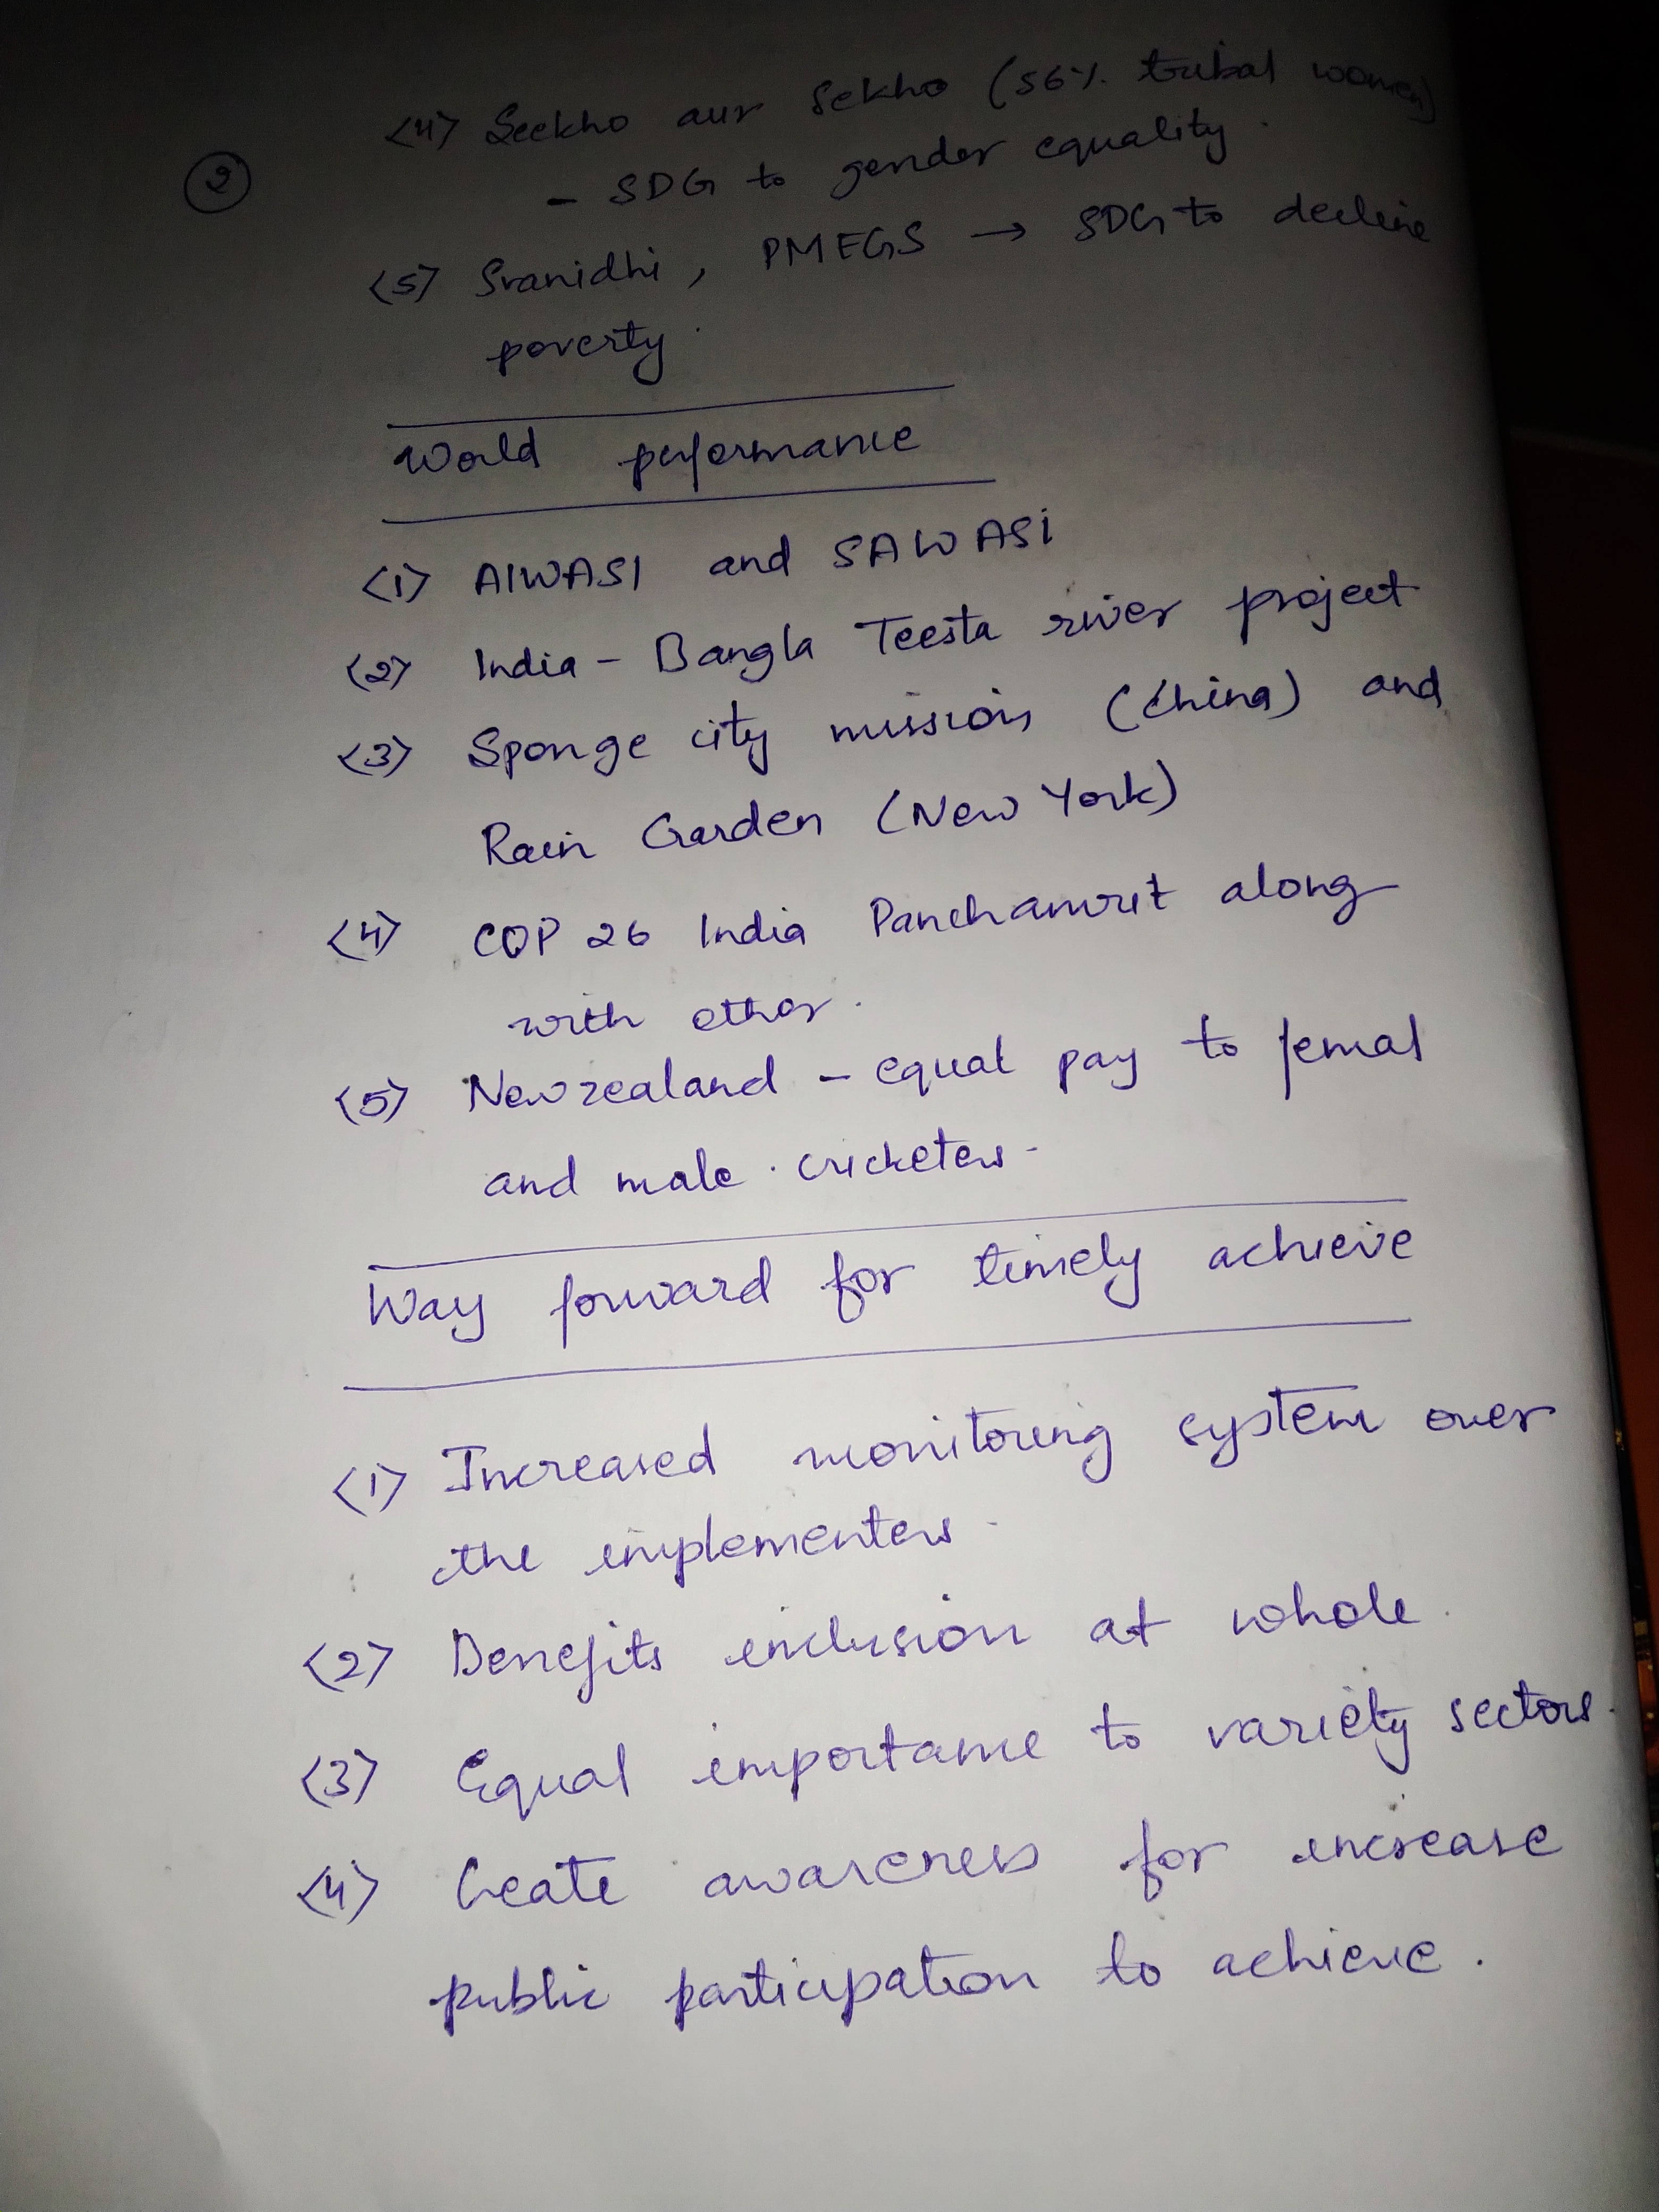 <4> Seekho aur Sekho (56% tribal women)
②
- SDG to gender equality.
<5> Svanidhi, PMEGS → SDG to decline
poverty.
World performance
<1> AIWASI and SAWASI
<2> India - Bangla Teesta river project
<3> Sponge city mission (China) and
Rain Garden (New York)
<4> COP 26 India Panchamrit along
with other.
<5> Newzealand - equal pay to femal
and male cricketers.
Way forward for timely achieve
<1> Increased monitoring system over
the implementers.
<2> Benefits inclusion at whole.
<3> Equal importance to variety sectors.
<4> Create awareness for increase
public participation to achieve.